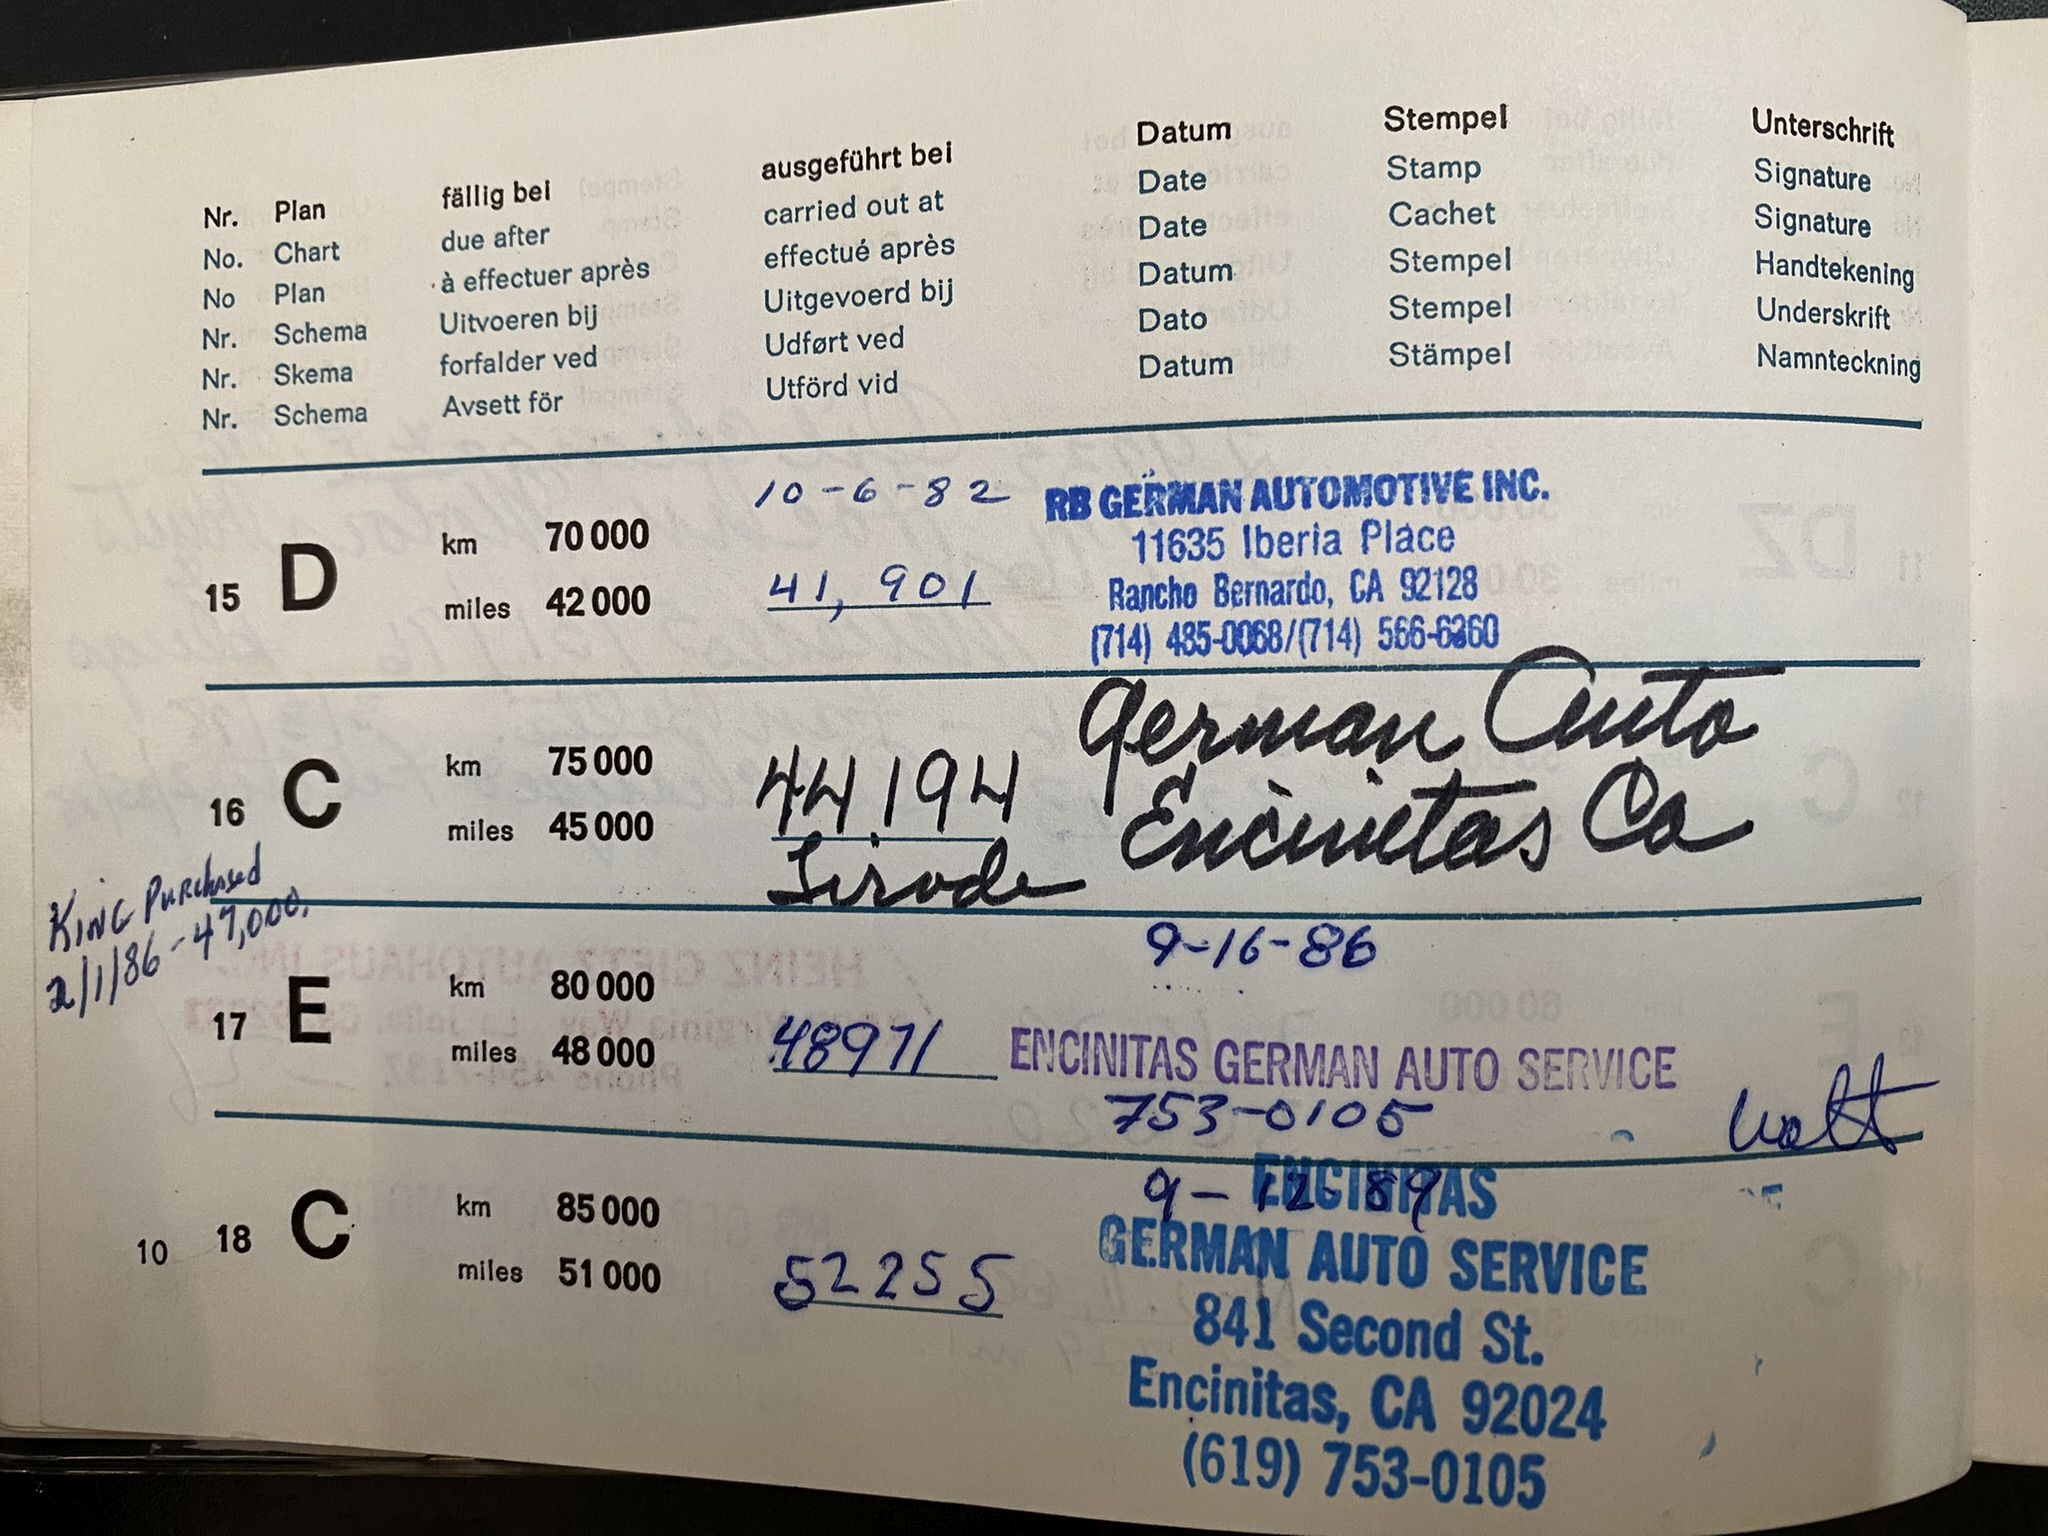 Nr. Plan fällig bei ausgeführt bei Datum Stempel Unterschrift
No. Chart due after carried out at Date Stamp Signature
No Plan à effectuer après effectué après Date Cachet Signature
Nr. Schema Uitvoeren bij Uitgevoerd bij Datum Stempel Handtekening
Nr. Skema forfalder ved Udført ved Dato Stempel Underskrift
Nr. Schema Avsett för Utförd vid Datum Stämpel Namnteckning
10-6-82 RB GERMAN AUTOMOTIVE INC.
km 70 000 11635 Iberia Place
15 D miles 42 000 41,901 Rancho Bernardo, CA 92128
(714) 485-0068/(714) 566-6360
km 75 000 German Auto
16 C miles 45 000 44,194 Encinitas Ca
KING PURCHASED
2/1/86 - 47,000.
9-16-86
km 80 000
17 E miles 48 000 48971 ENCINITAS GERMAN AUTO SERVICE
753-0105
9-12-89 ENCINITAS
km 85 000 GERMAN AUTO SERVICE
10 18 C miles 51 000 52255 841 Second St.
Encinitas, CA 92024
(619) 753-0105